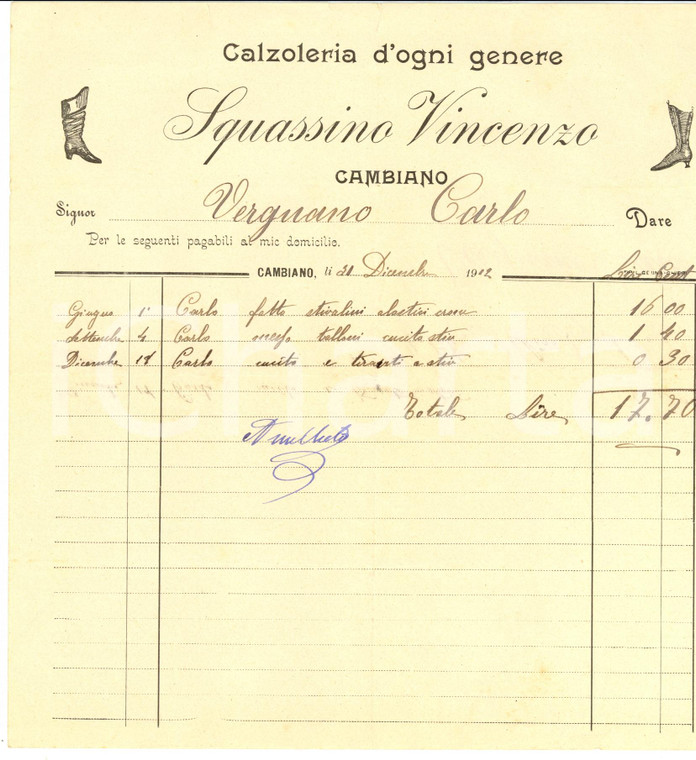 Calzoleria d'ogni genere
Squassino Vincenzo
CAMBIANO
Signor Vergnano Carlo Dare
Per le seguenti pagabili al mio domicilio.
CAMBIANO, li 31 Dicembre 1902 Lire Cent
Giugno 1° Carlo fatto stivalini elastici 16 00
Settembre 4 Carlo messo talloni cucito stiv 1 40
Dicembre 18 Carlo cucito e tiranti a stiv 0 30
Totale Lire 17.70